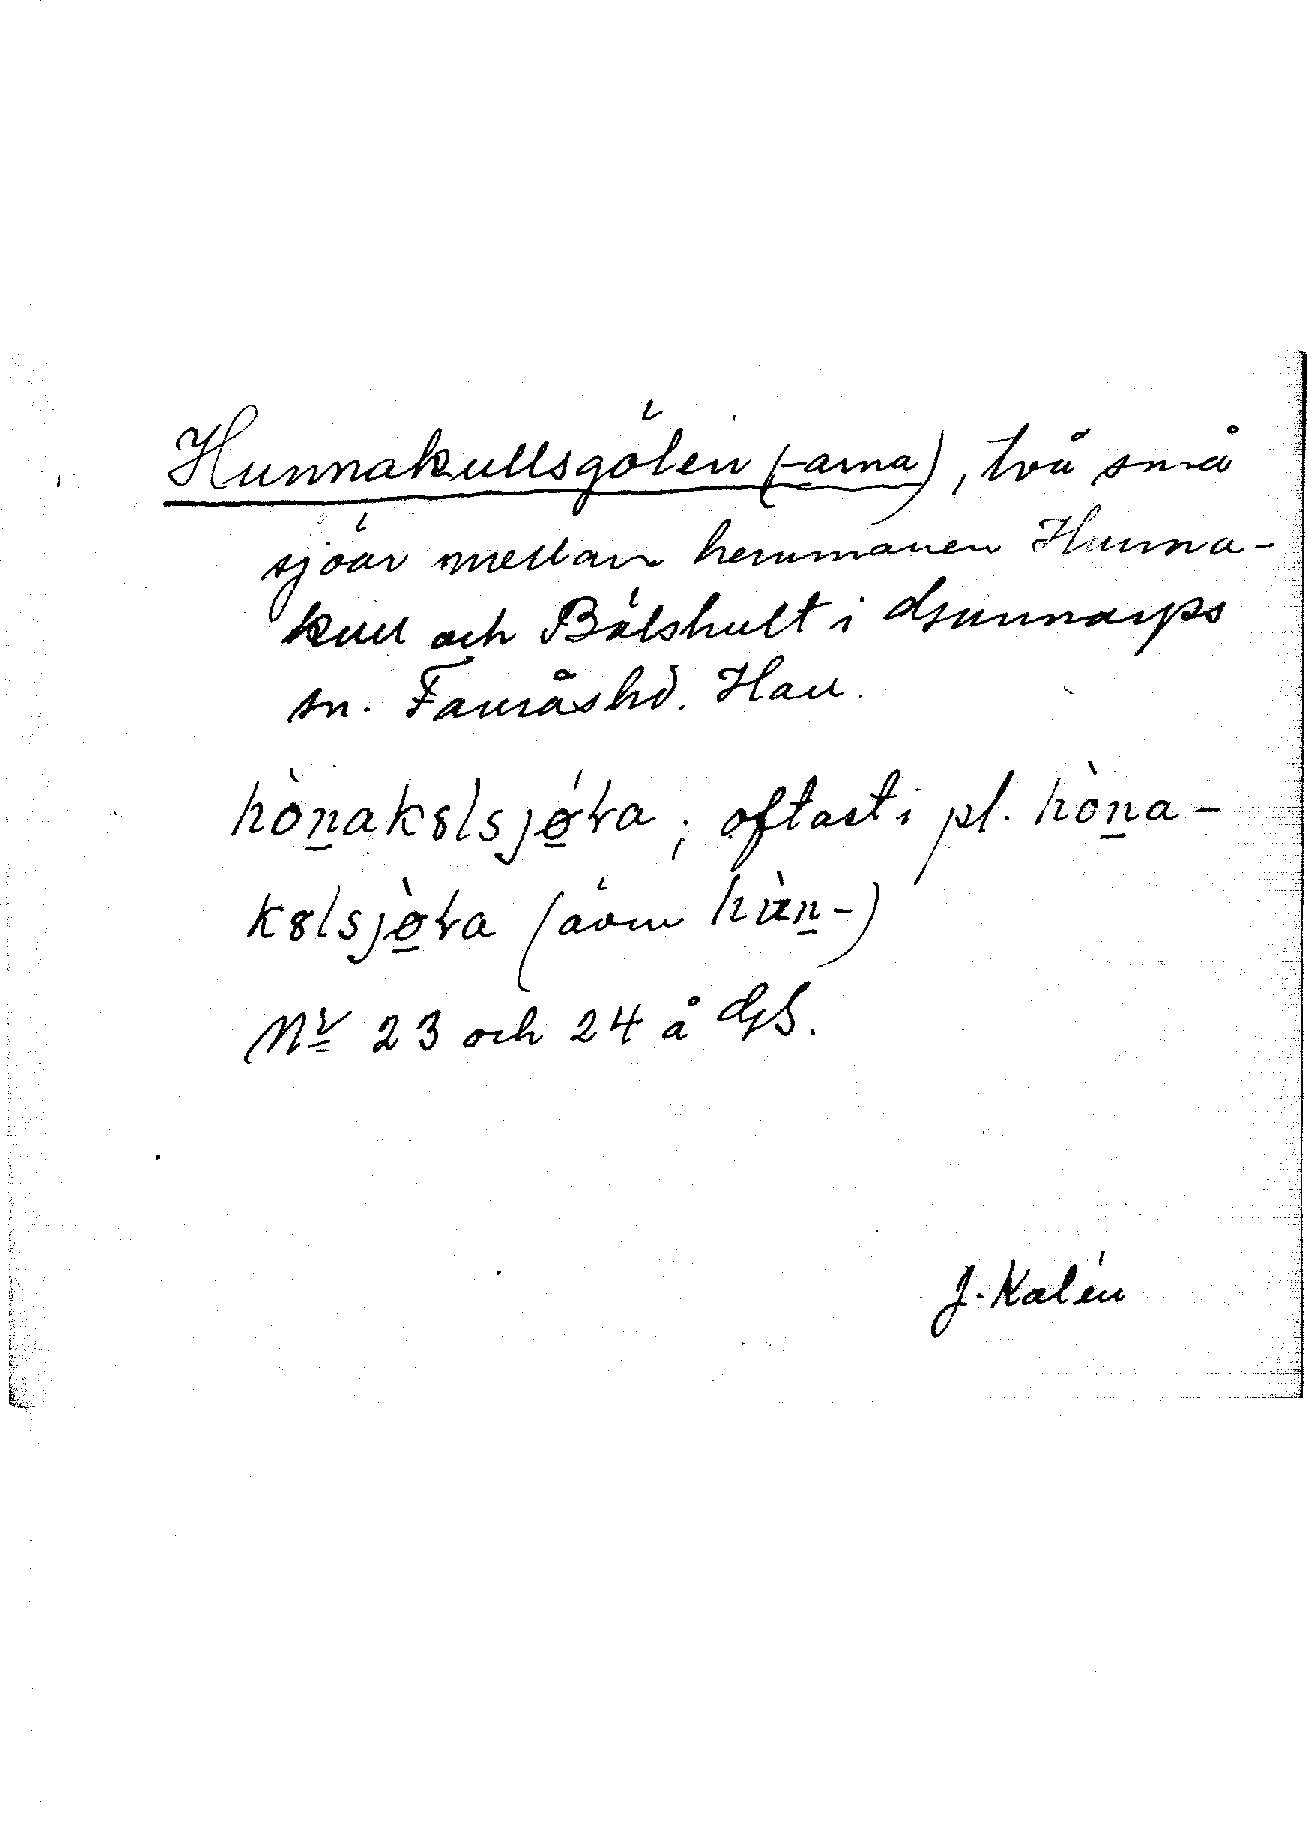 Hunnakullsgölen (-arna), två små
sjöar mellan hemmanen Hunna-
kull och Bölshult i Gunnarps
sn. Fauråshd. Hall.
hòn̲akɞlsjǿ̲ɫa; oftast i pl. hòn̲a-
kɞlsjø̲̀ɫa (även hùn̲-)
Nr 23 och 24 å GS.
J. Kalén